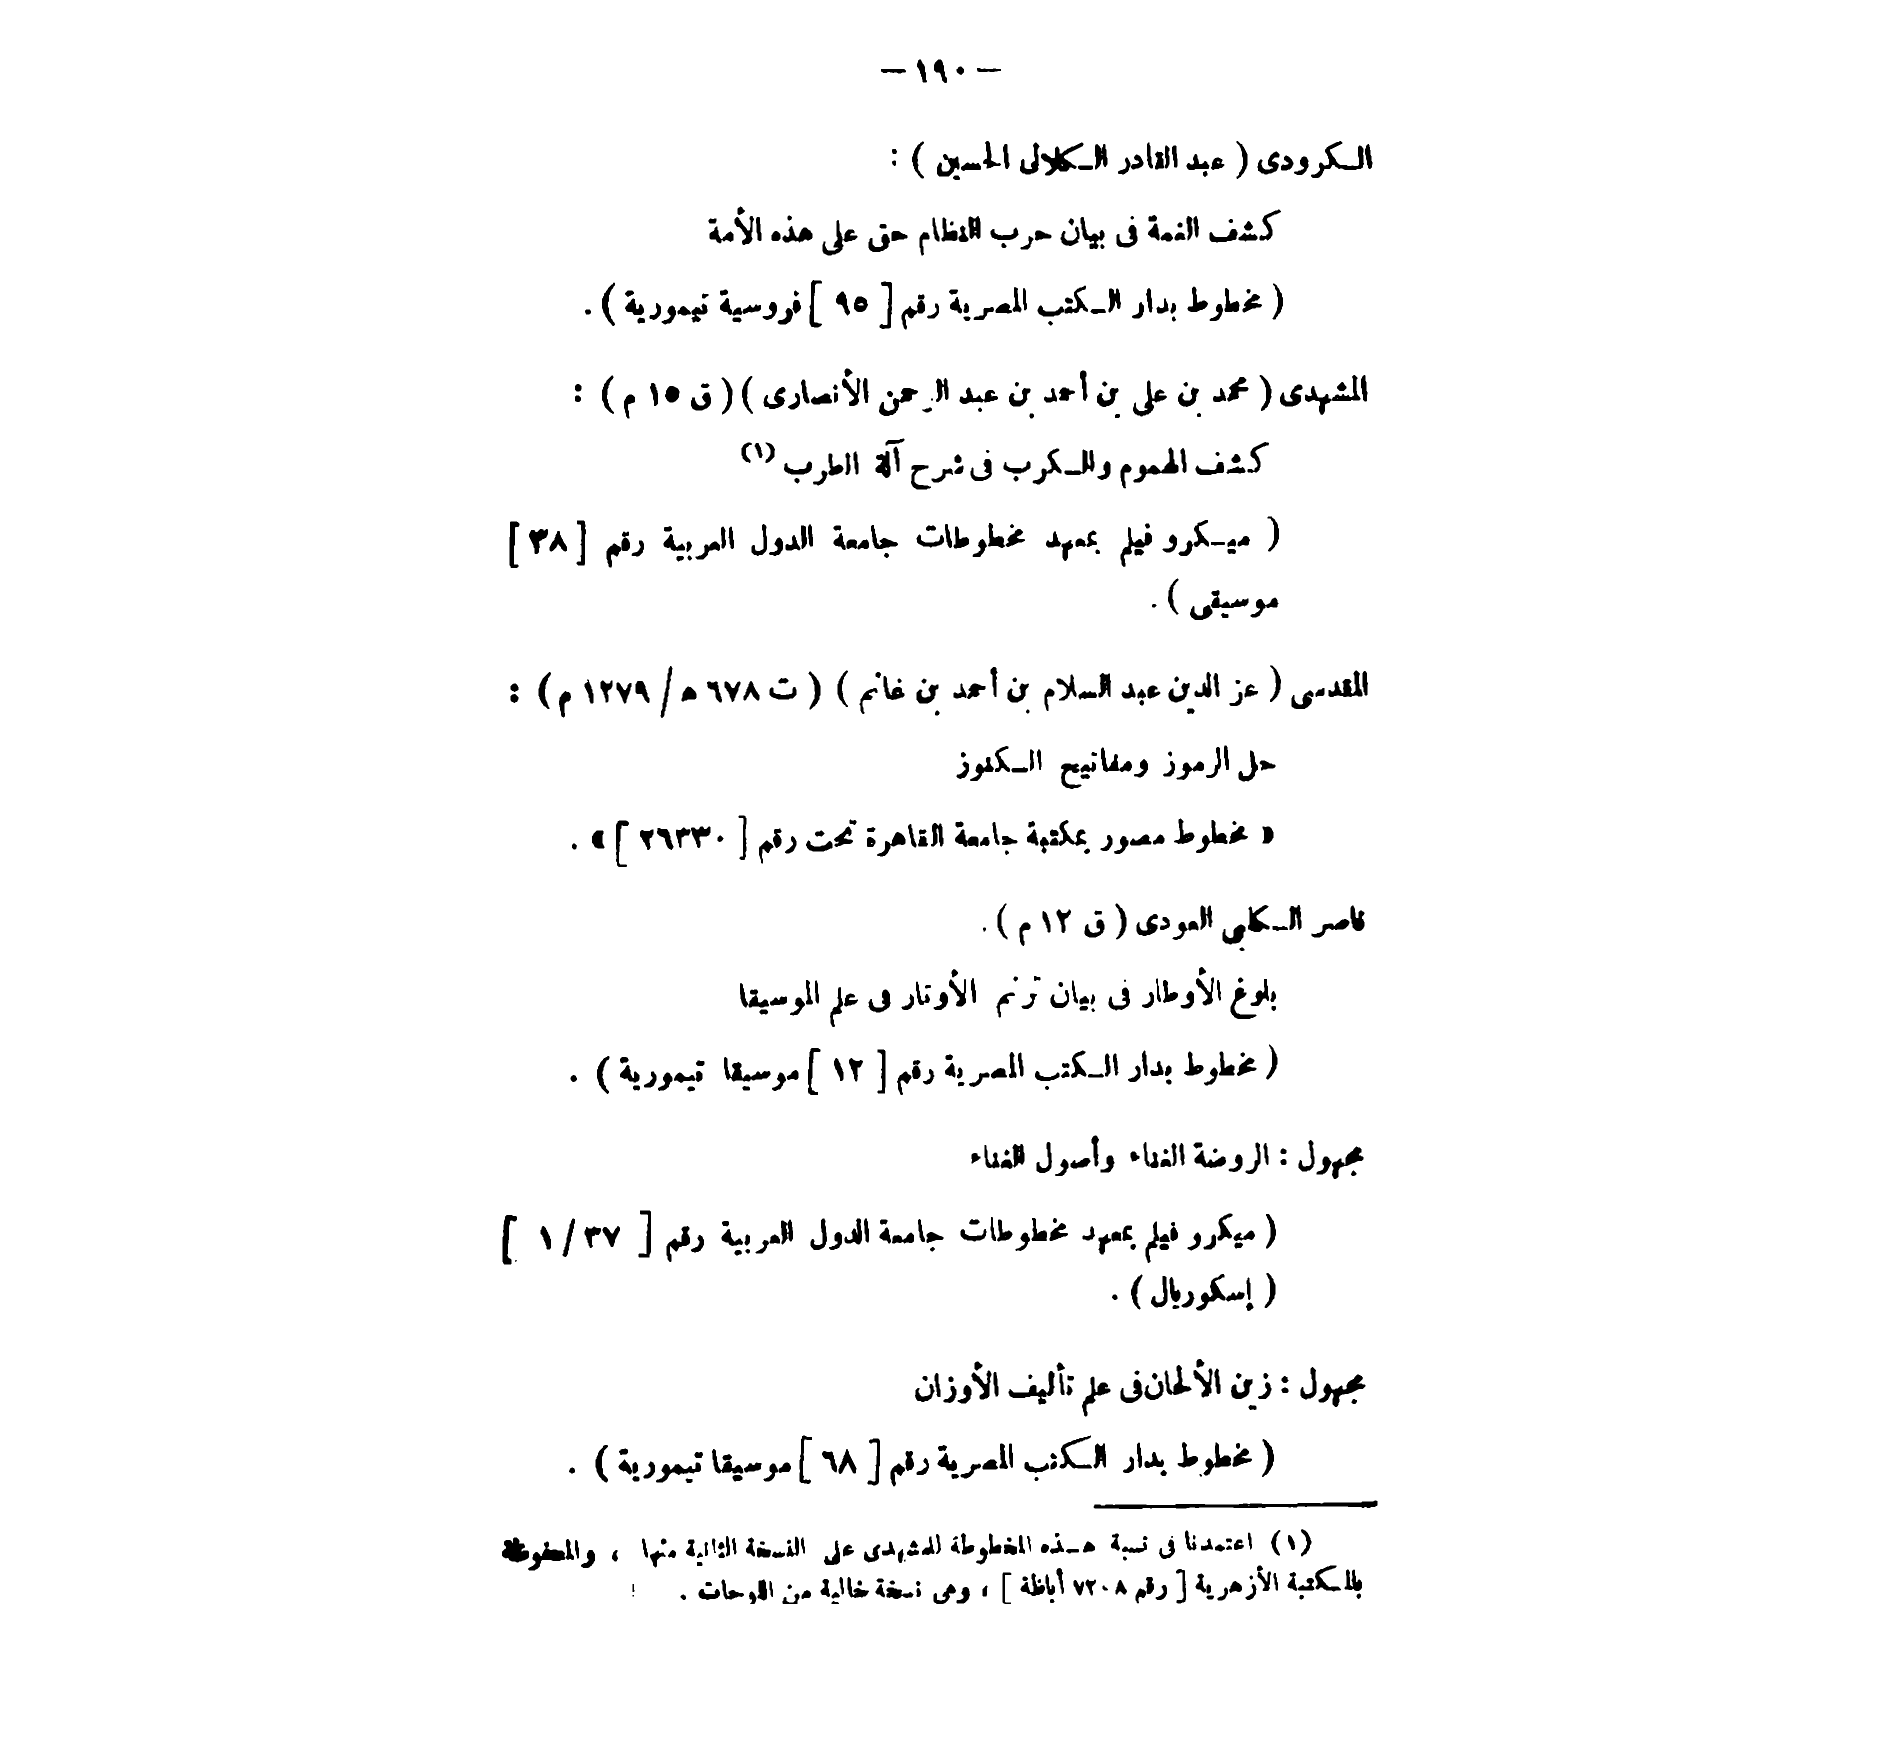 — ١٩٠ —
الكرودى ( عبد القادر الكلالى الحسين ) :
كشف الغمة فى بيان حرب النظام حق على هذه الأمة
( مخطوط بدار الكتب المصرية رقم [ ٩٥ ] فروسية تيمورية ) .
المشهدى ( محمد بن على بن أحمد بن عبد الرحمن الأنصارى ) ( ق ١٥ م ) :
كشف الهموم والكرب فى شرح آلة الطرب (١)
( ميكرو فيلم بمعهد مخطوطات جامعة الدول العربية رقم [ ٣٨ ]
موسيقى ) .
المقدسى ( عز الدين عبد السلام بن أحمد بن غانم ) ( ت ٦٧٨ ه / ١٢٧٩ م ) :
حل الرموز ومفاتيح الكنوز
« مخطوط مصور بمكتبة جامعة القاهرة تحت رقم [ ٢٦٣٣٠ ] » .
ناصر الكلبى العودى ( ق ١٢ م ) .
بلوغ الأوطار فى بيان ترنم الأوتار فى علم الموسيقا
( مخطوط بدار الكتب المصرية رقم [ ١٢ ] موسيقا تيمورية ) .
مجهول : الروضة الغناء وأصول الغناء
( ميكرو فيلم بمعهد مخطوطات جامعة الدول العربية رقم [ ٣٧ / ١ ]
( إسكوريال ) .
مجهول : زين الألحان فى علم تأليف الأوزان
( مخطوط بدار الكتب المصرية رقم [ ٦٨ ] موسيقا تيمورية ) .
(١) اعتمدنا فى نسبة هذه المخطوطة للمشهدى على النسخة الثانية منها ، والمحفوظة
بالمكتبة الأزهرية [ رقم ٧٢٠٨ أباظة ] ، وهى نسخة خالية من اللوحات .